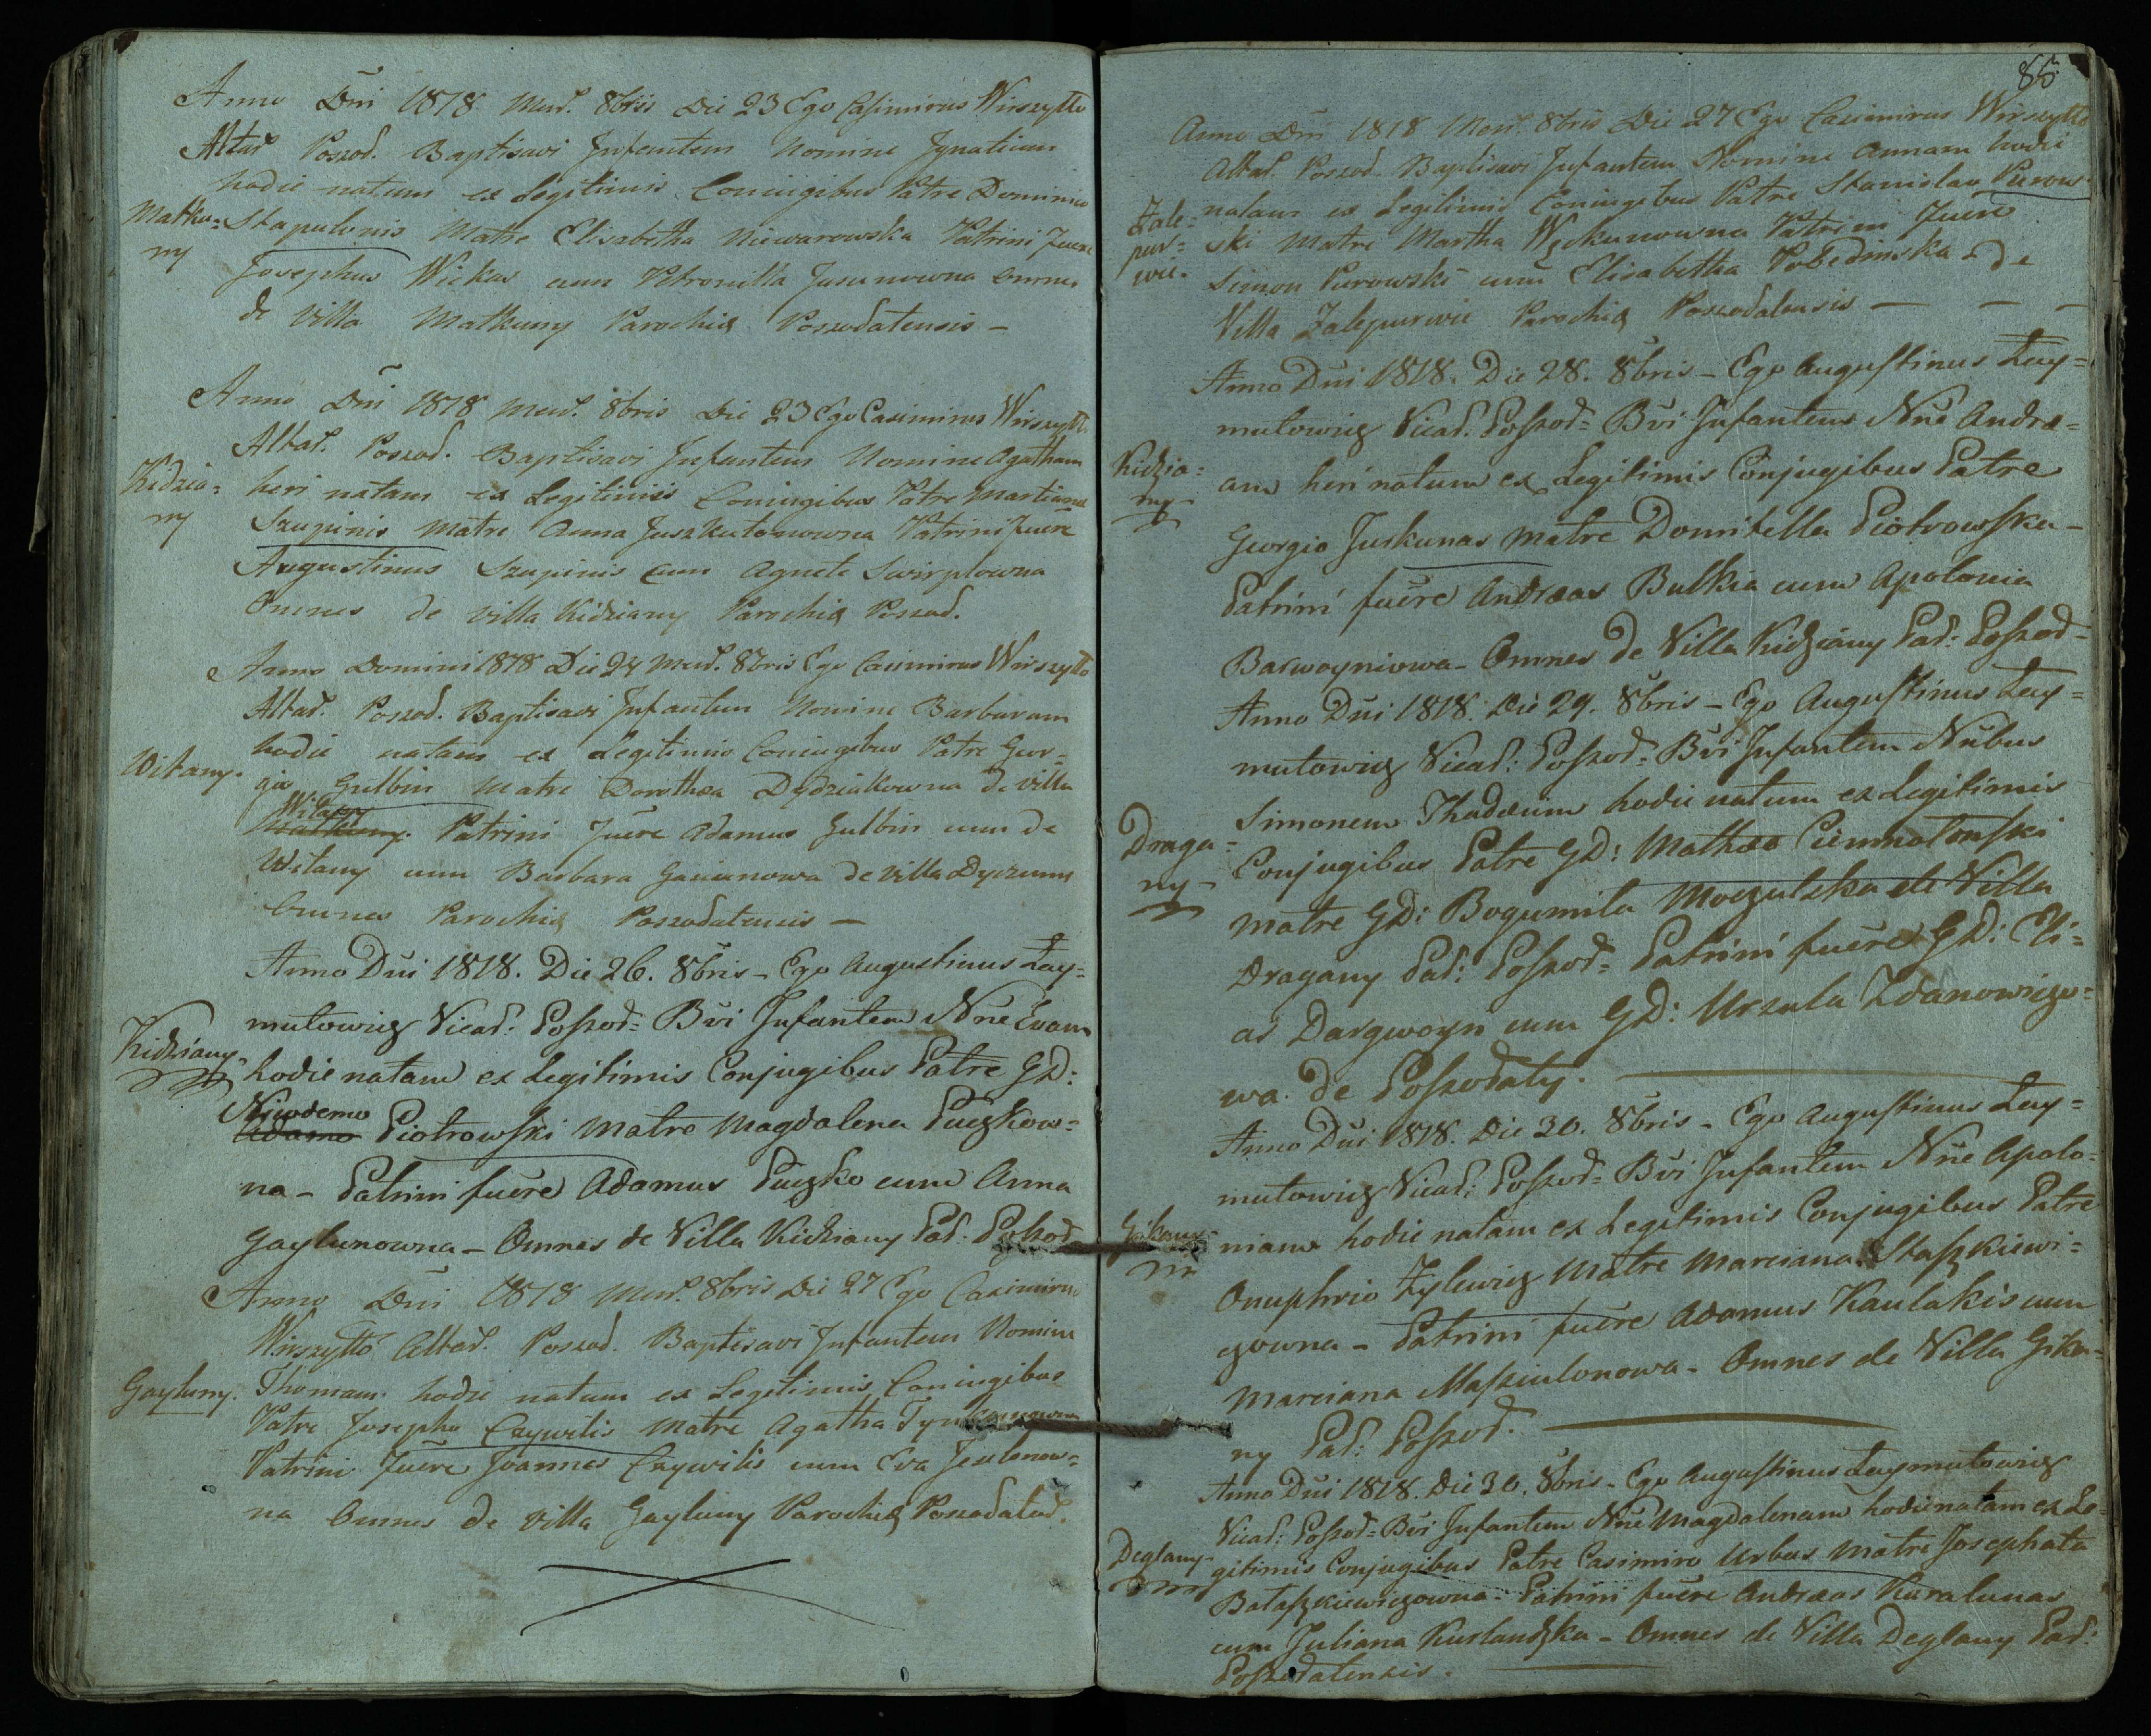 Anno Dni 1818 Mens. 8bris Die 23 Ego Casimirus Wirszyłło
Altar. Poszod. Baptisavi Infantem Nomine Ignatium
hodie natum ex Legitimis Coniugibus Patre Dominico
Matku= Stapulonis Matre Elisabetha Niewarowska Patrini fuere
ny Josephus Wickas cum Petronilla Jusunowna Omnes
de Villa Matkuny Parochiæ Poszodatensis –
Anno Dni 1818 Mens. 8bris Die 23 Ego Casimirus Wirszyłło
Altar. Poszod. Baptisavi Infantem Nomine Agatham
Kidzia= heri natam ex Legitimis Coniugibus Patre Martiano
ny Szupinis Matre Anna Juszkutonowna Patrini fuere
Augustinus Szupinis cum Agneta Swirplowna
Omnes de villa Kidziany Parochiæ Poszod.
Anno Domini 1818 Die 24 Mens. 8bris Ego Casimirus Wirszyłło
Altar. Poszod. Baptisavi Infantem Nomine Barbaram
hodie natam ex Legitimis Coniugibus Patre Geor=
Witany. gio Gulbin Matre Dorothea Dydziakowna de villa
Witany
Matkuny. Patrini fuere Adamus Gulbin cum de
Witany cum Barbara de villa
Omnes Parochiæ Poszodatensis –
Anno Dni 1818. Die 26. 8bris – Ego Augustinus Zay=
mutowicz Vicar: Poszod= Bvi Infantem Nne Evam
Kidziany. hodie natam ex Legitimis Conjugibus Patre GD:
Nicodemo
Adamo Piotrowski Matre Magdalena Puczkow=
na – Patrini fuere Adamus Puczko cum Anna
Gaylunowna – Omnes de Villa Kidziany Par: Poszod
Anno Dni 1818 Mens. 8bris Die 27 Ego Casimirus
Wirszyłło Altar. Poszod. Baptisavi Infantem Nomine
Gayluny. Thomam hodie natum ex Legitimis Coniugibus
Patre Josepho Czywilis Matre Agatha
Patrini fuere Joannes Czywilis cum Eva Jesulonow=
na Omnes de villa Gayluny Parochiæ Poszodatens.
85
Anno Dni 1818 Mens. 8bris Die 27 Ego Casimirus Wirszyłło
Altar. Poszod. Baptisavi Infantem Nomine Annam hodie
Zale= natam ex Legitimis Coniugibus Patre Stanislao Purow=
pur= ski Matre Martha Wickunowna Patrini fuere
wie. Simon Purowski cum Elisabetha Pobedinska de
Villa Zalepurwie Parochiæ Poszodatensis – – –
Anno Dni 1818. Die 28. 8bris – Ego Augustinus Zay=
mutowicz Vicar. Poszod= Bvi Infantem Nne Andre=
Kidzia= am heri natum ex Legitimis Conjugibus Patre
ny Georgio Juskunas Matre Domitella Piotrowska –
Patrini fuere Andreas Butkia cum Apolonia
Barwoyniowa – Omnes de Villa Kidziany Par: Poszod=
Anno Dni 1818. Die 29. 8bris – Ego Augustinus Zay=
mutowicz Vicar: Poszod= Bvi Infantem Nnibus
Simonem Thadæum hodie natum ex Legitimis
Draga= Conjugibus Patre GD: Mathæo Ciemnolonski
ny – Matre GD: Bogumila Moczulska de Villa
Dragany Par: Poszod= Patrini fuere GD: Eli=
as Dargwoyn cum GD: Urzula Zdanowiczo=
wa de Poszodaty.
Anno Dni 1818. Die 30. 8bris – Ego Augustinus Zay=
mutowicz Vicar: Poszod= Bvi Infantem Nne Apolo=
Gikany niam hodie natam ex Legitimis Conjugibus Patre
Onuphrio Zylewicz Matre Marciana Staszkiewi=
czowna – Patrini fuere Adamus Kaulakis cum
Marciana Masziulonowa – Omnes de Villa Gika=
ny Par: Poszod.
Anno Dni 1818. Die 30. 8bris – Ego Augustinus Zaymutowicz
Vicar: Poszod= Bvi Infantem Nne Magdalenam hodie natam ex Le=
Deglany – gitimis Conjugibus Patre Casimiro Urbas Matre Josephata
Bataszkiewiczowna – Patrini fuere Andreas Kuralunas
cum Juliana Kurlandzka – Omnes de Villa Deglany Par:
Poszodatensis.